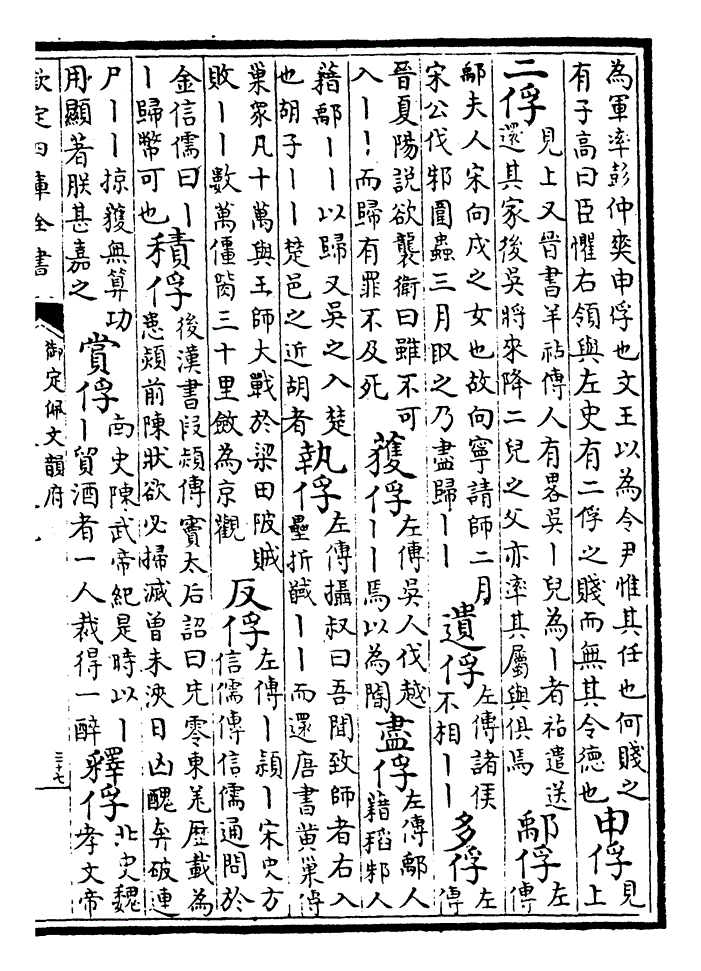 為軍率彭仲爽申俘也文王以為令尹惟其任也何賤之
有子高曰臣懼右領與左史有二俘之賤而無其令德也
申俘
見
上
二俘
見上又晉書羊祜傳人有畧吳丨兒為丨者祜遣送
還其家後吳將來降二兒之父亦率其屬與俱焉
鄅俘
左
傳
鄅夫人宋向戌之女也故向寧請師二月
宋公伐邾圍蟲三月取之乃盡歸丨丨
遺俘
左傳諸侯
不相丨丨
多俘
左
傳
晉夏陽說欲襲衛曰雖不可
入丨丨而歸有罪不及死
獲俘
左傳吳人伐越
丨丨焉以為閽
盡俘
左傳鄅人
藉稻邾人
藉鄅丨丨以歸又吳之入楚
也胡子丨丨楚邑之近胡者
執俘
左傳攝叔曰吾聞致師者右入
壘折馘丨丨而還唐書黄巢傳
巢眾凡十萬與王師大戰於梁田陂賊
敗丨丨數萬僵胔三十里斂為京觀
反俘
左傳丨潁丨宋史方
信儒傳信儒通問於
金信儒曰丨
丨歸幣可也
積俘
後漢書段熲傳竇太后詔曰先零東羌歷載為
患熲前陳狀欲必掃滅曾未浹日凶醜奔破連
尸丨丨掠獲無算功
用顯著朕甚嘉之
賞俘
南史陳武帝紀是時以丨
丨貿酒者一人裁得一醉
釋俘
北史魏
孝文帝
欽定四庫全書
御定佩文韻府
三十七